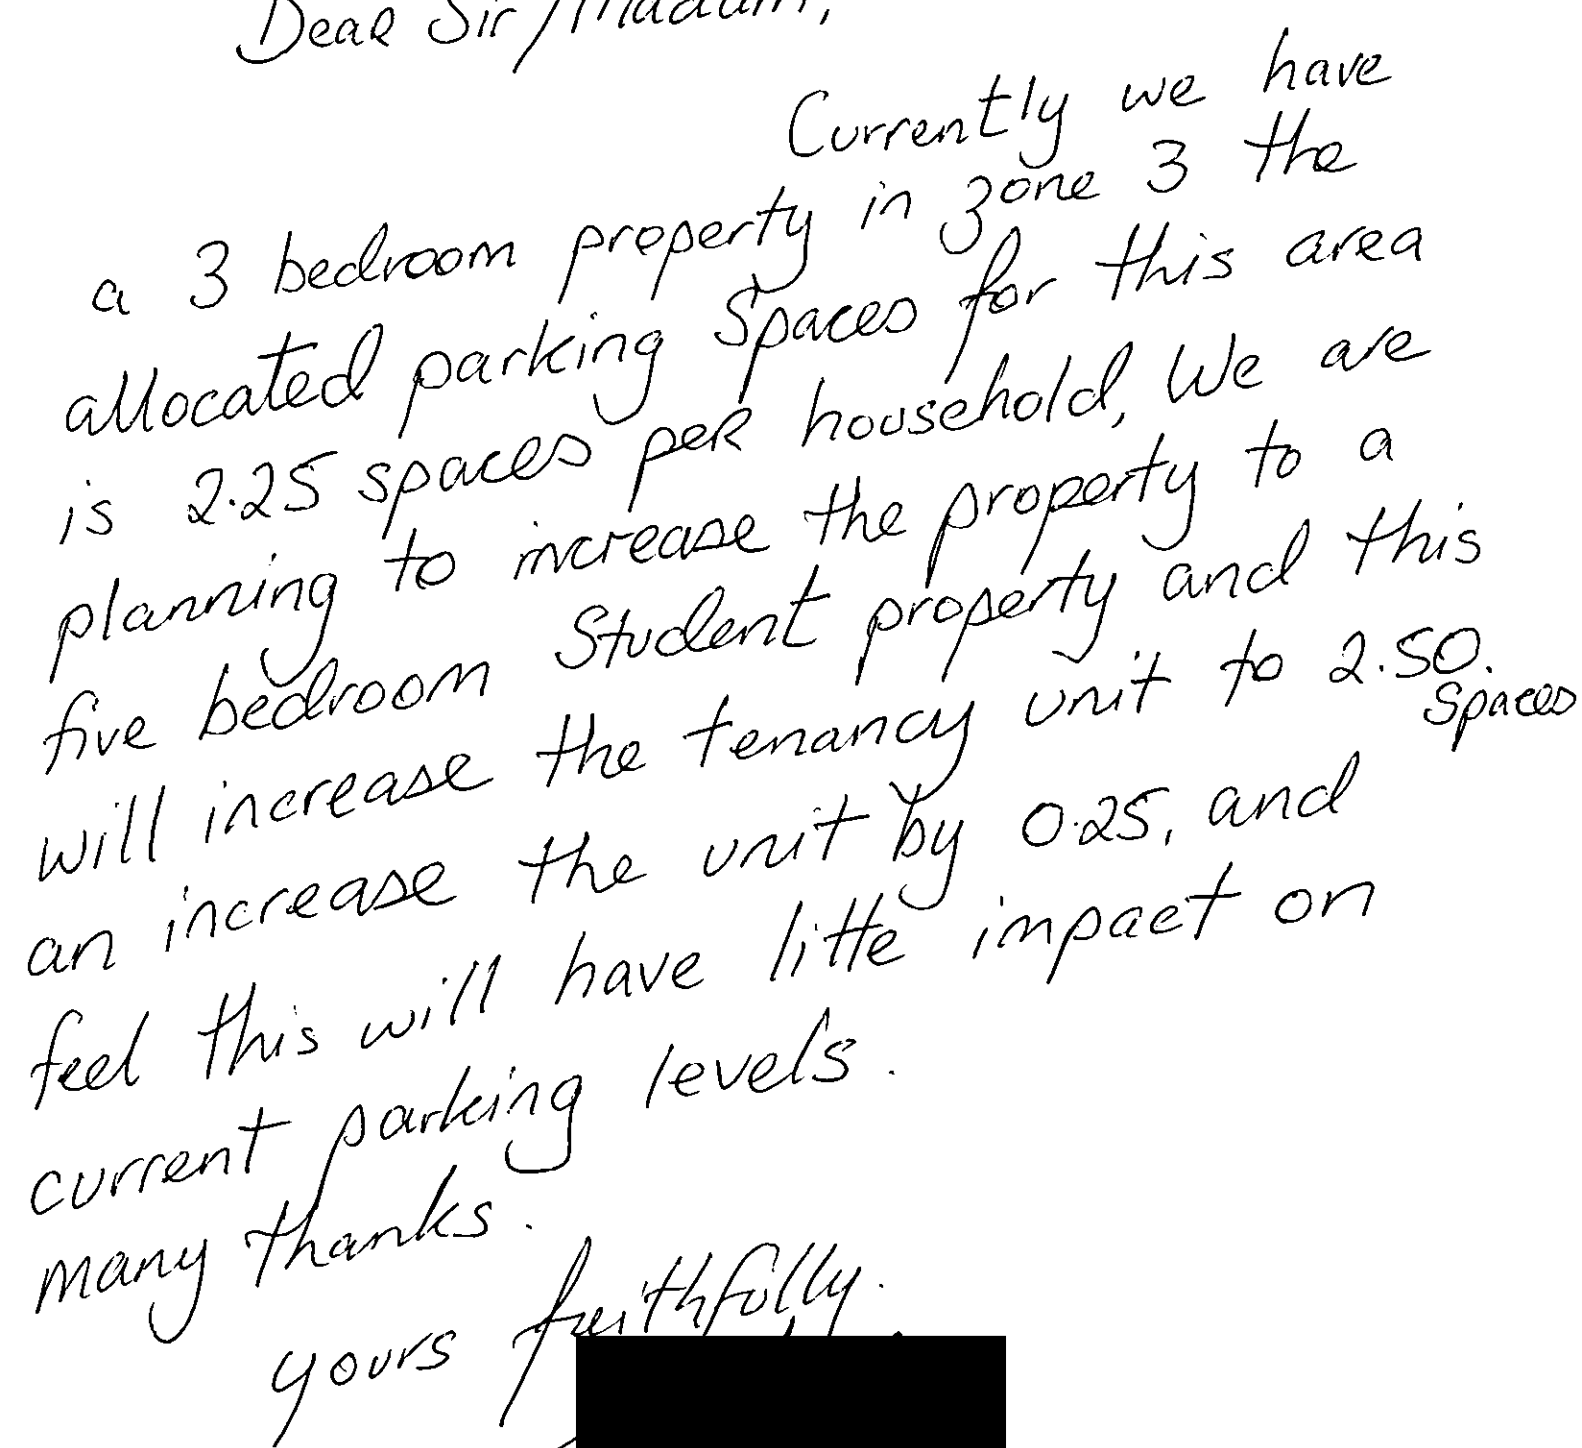 Dear Sir/Madam,
Currently we have
a 3 bedroom property in zone 3 the
allocated parking Spaces for this area
is 2.25 spaces per household, We are
planning to increase the property to a
five bedroom Student property and this
will increase the tenancy unit to 2.50.
Spaces
an increase the unit by 0.25, and
feel this will have litte impact on
current parking levels.
Many thanks.
yours faithfully.